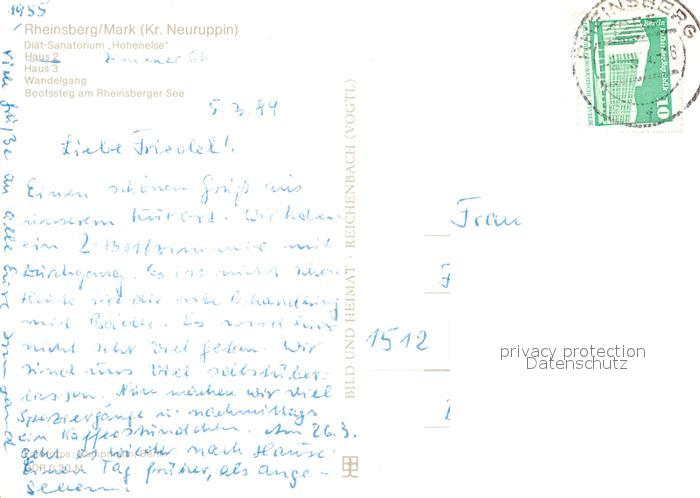 1955
Rheinsberg/Mark (Kr. Neuruppin)
Diät-Sanatorium „Hohenelse"
Haus 2 Zimmer 66
Haus 3
Wandelgang
Bootssteg am Rheinsberger See
5.3.84
Liebe Friedel!
Einen schönen Gruß aus
unserem Kurort. Wir haben
ein 2-Bettzimmer mit
Durchgang. Es ist nicht schön
Heute ist die erste Behandlung
mit Bäder. Es wird uns
nicht sehr viel geben. Wir
sind uns viel selbstüber-
lassen. Nun machen wir viel
Spaziergänge u. nachmittags
ein Kaffeestündchen. Am 26.3.
geht es wieder nach Hause
einen Tag früher, als ange-
sehen.
Viele Grüße an alle
BILD UND HEIMAT · REICHENBACH (VOGTL)
Frau
1512
RHEINSBERG
Berlin, Palast der Republik
10
privacy protection
Datenschutz